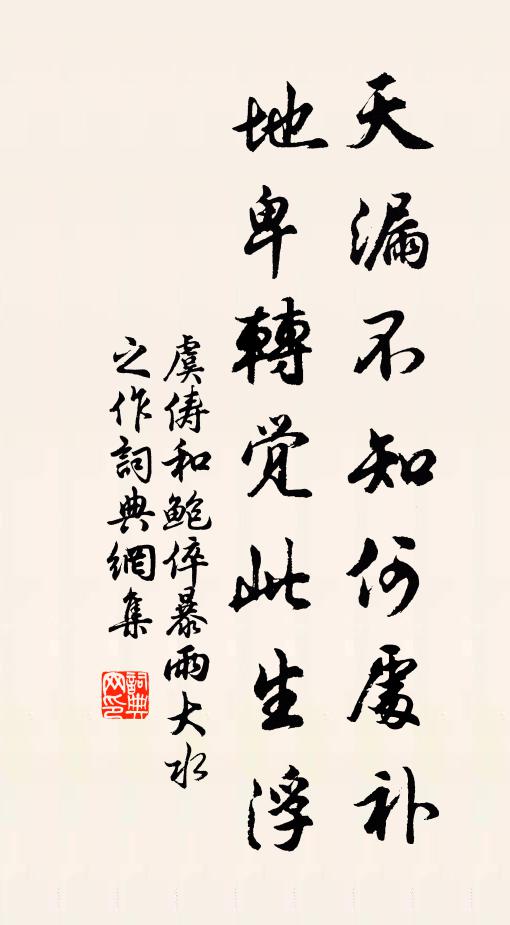 天漏不知何處补
地卑轉覚此生浮
虞儔和鮑倅暴雨大水
之作詞典網集
詞典
网印